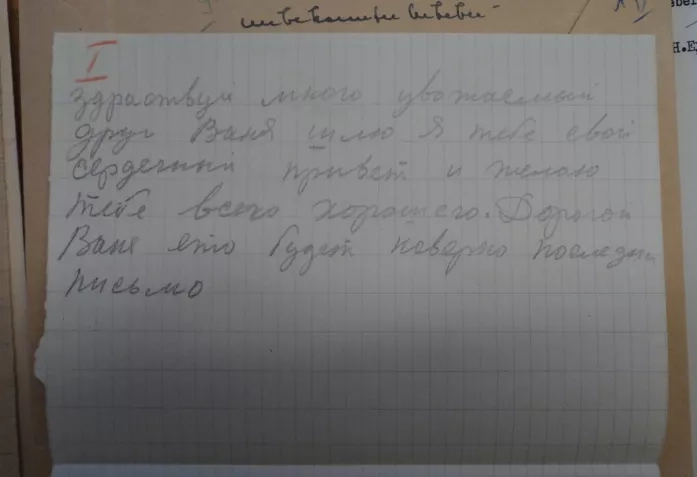 I
здраствуй много уважаемый
друг Ваня шлю я тебе свой
сердечный привет и желаю
тебе всего хорошего. Дорогой
Ваня ето будет наверно последни
письмо